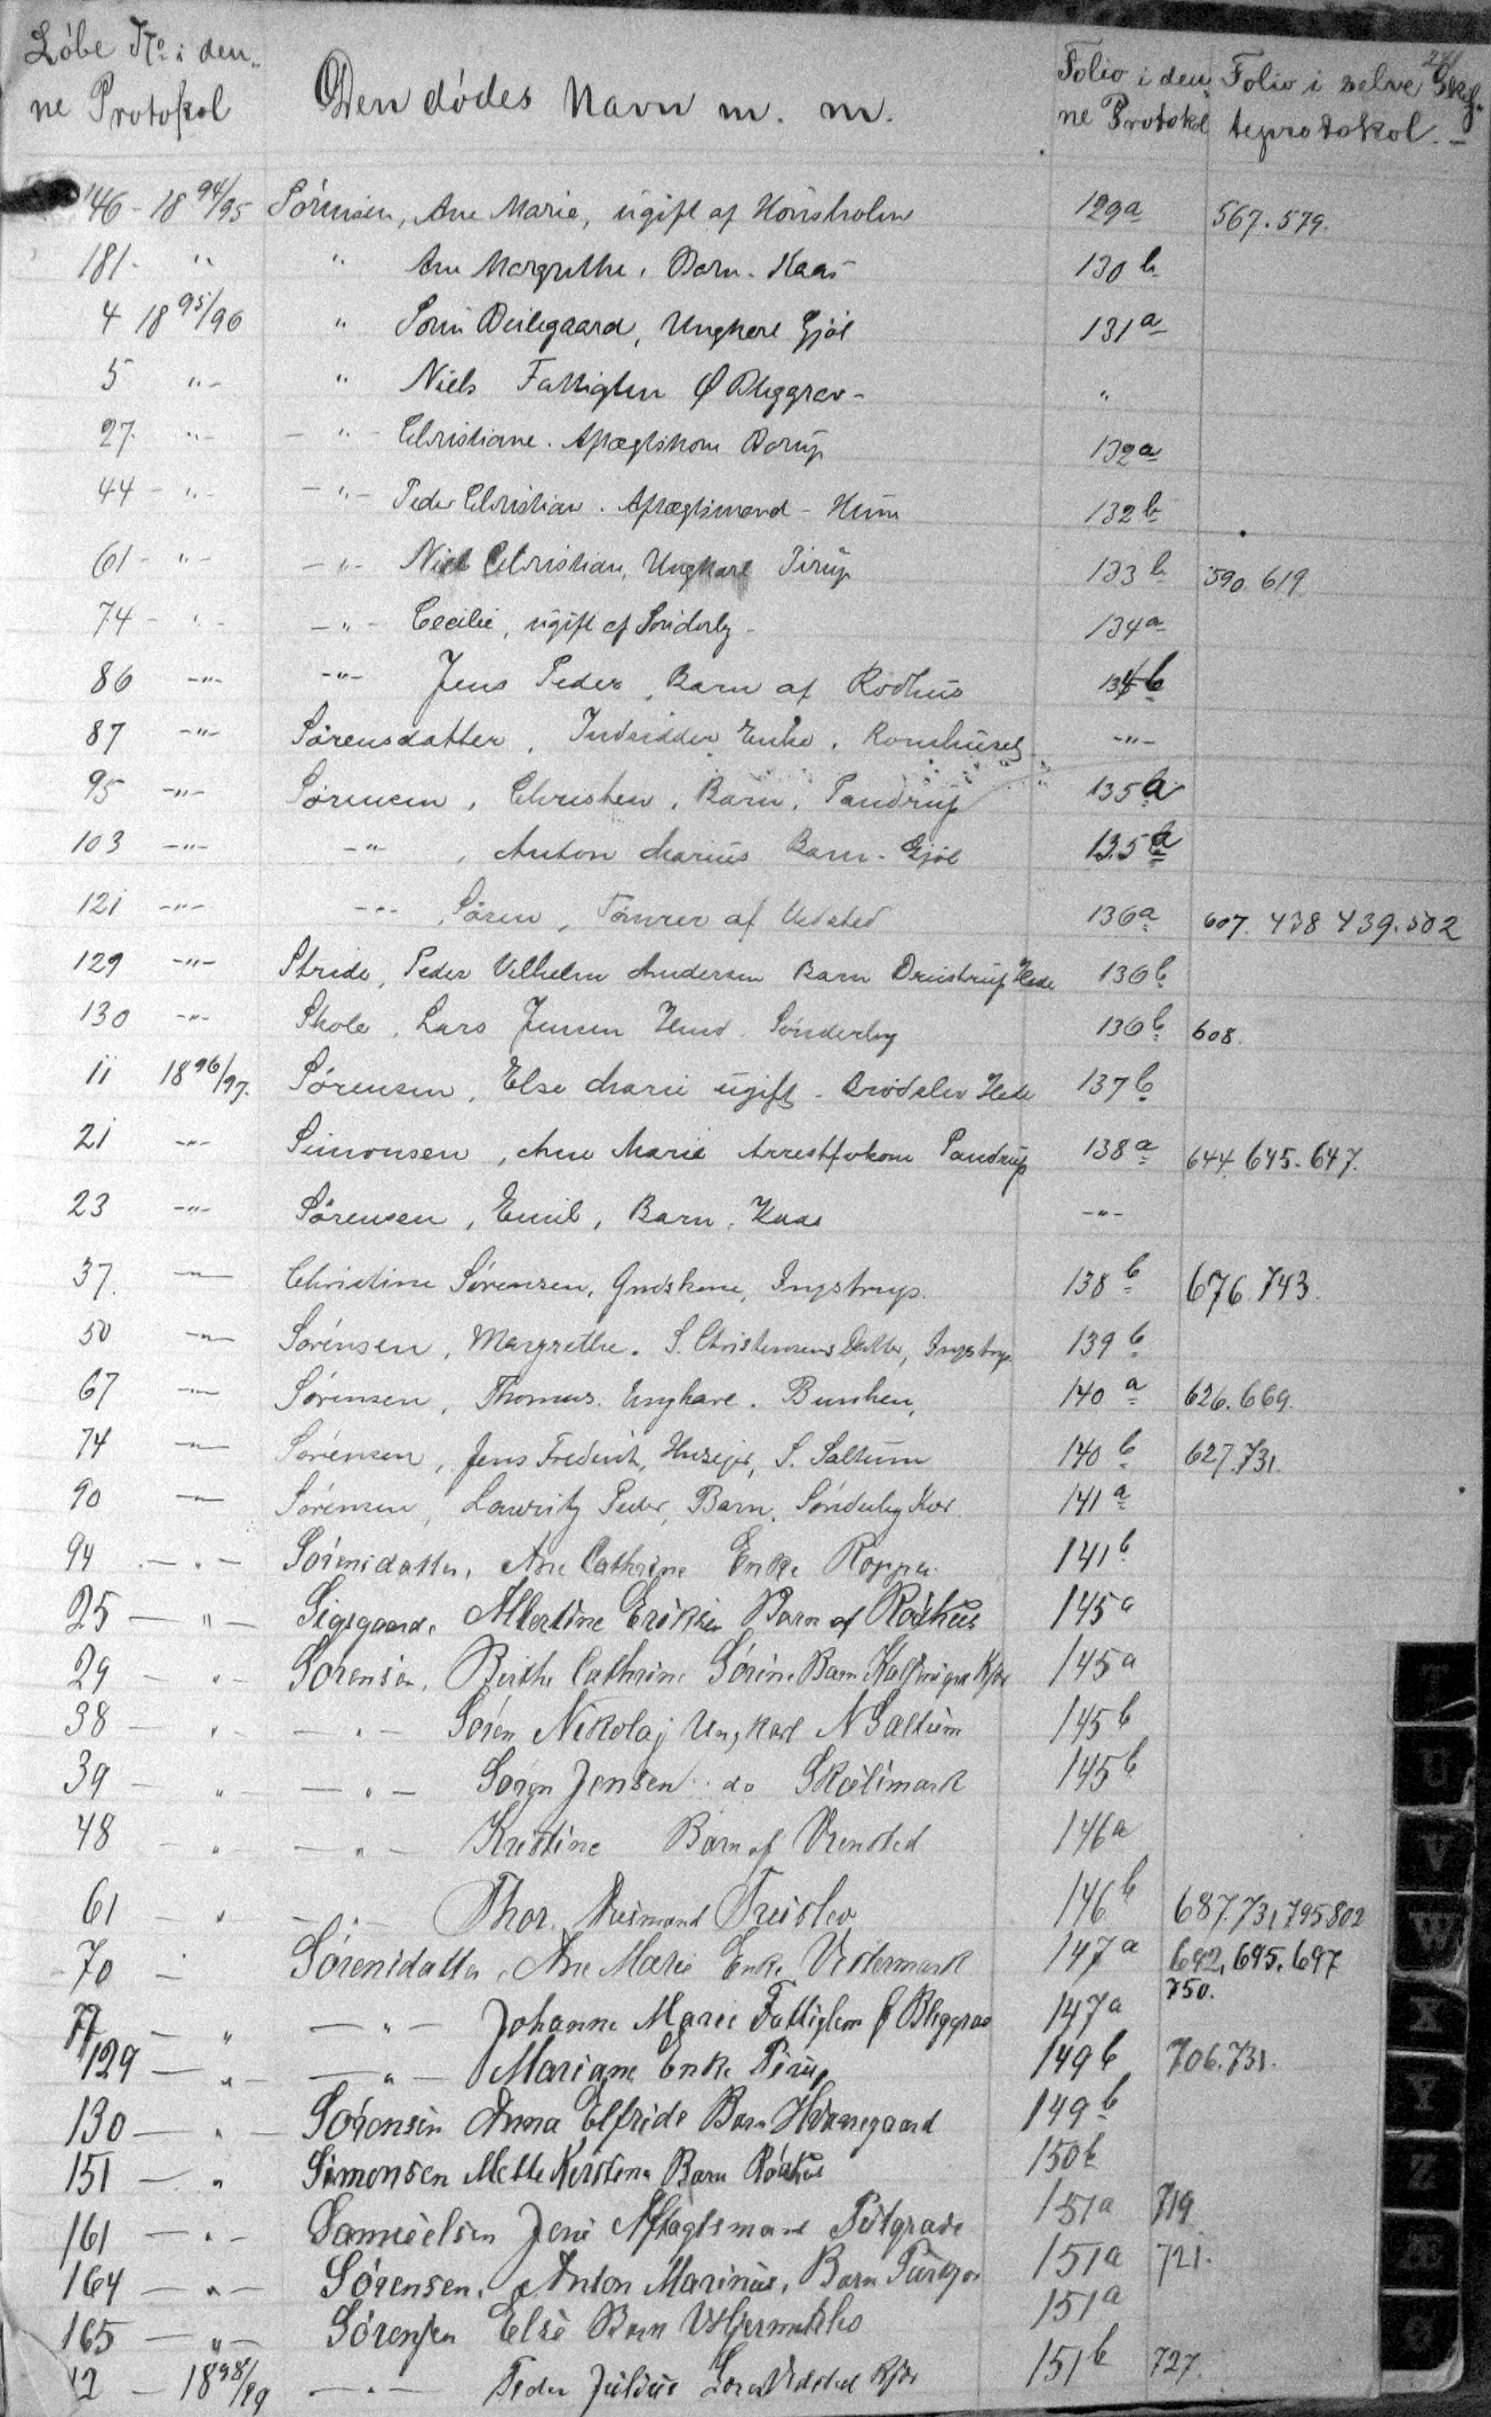 241
Löbe No i den- Den dödes Navn m. m. Folio i den- Folio i selve Skif-
ne Protokol ne Protokol teprotokol. -
146 - 18 94/95 Sörensen, Ane Marie, ugift af 129a 567. 579.
181 - " " Ane Margrethe, Barn - Kaas 130 b
4 18 95/96 " Ungkarl Gjöl 131 a
5 " - " Niels Fattiglem Ø Bleggrav - "
27. " - - " - Christiane. Aftægtskone 132a
44 - " - - " - Peder Christian. Aftægtsmand - Hune 132 b
61 - " - - " - Niels Christian, Ungkarl Pirup 133 b 590. 619
74 - " - - " - Cecilie, ugift af Sönderby - 134 a
86 - " - - " - Jens Peder, Barn af Rödhus 134 b
87 - " - Sörensdatter, Indsidder Enke, - " -
95 - " - Sörensen, Christen, Barn, Pandrup 135 a
103 - " - - " - , Anton Marius Barn - Gjöl 135 a
121 - " - - " - Sören, Tömrer af Vedsted 136 a 607. 438 439. 502
129 - " - Stride, Peder Vilhelm Andersen Barn Drustrup Hede 136 b
130 - " - Skole, Lars Jensen Hmd. Sönderby 136 b 608.
11 18 96/97. Sörensen, Else Marie ugift - Brödslev Hede 137 b
21 - " - Simonsen, Ane Marie Pandrup 138 a 644. 645. 647.
23 - " - Sörensen, Emil, Barn. Kaas - " -
37. - " - Christine Sörensen, Gmdskone, Ingstrup. 138 b 676. 743.
50 - " - Sörensen, Margrethe. S. Christensens Datter, Ingstrup 139 b
67 - " - Sörensen, Thomas. Ungkarl. Bunken, 140 a 626. 669.
74 - " - Sörensen, Jens Frederik, Husejer, S. Saltum 140 b 627. 731.
90 - " - Sörensen, Lauritz Peder, Barn, Sönderby Kær 141 a
94 - " - Sörensdatter, Ane Cathrine Enke 141 b
25 - " - Sigsgaard, Albertine Eriksen Barn af Rödhus 145 a
29 - " Sörensen, Birthe Cathrine Sörine Barn Kjær 145 a
38 - " - " - Sören Nikolaj Ungkarl N Saltum 145 b
39 - " - " - Sören Jensen do 145 b
48 - " - " - Kristine Barn af Vrensted 146 a
61 - " - " - Thor. Husmand Treislev 146 b 687. 731, 795 802
70 - Sörensdatter, Ane Marie Enke Vestermark 147 a 692, 695, 697
750.
77 - " - " - Johanne Marie Fattiglem Ø Bleggrav 147 a
129 - " - - " - Mariane Enke Pirup 149 b 706. 731.
130 - " - Sörensen Anna Elfride Barn 149 b
151 - " Simonsen Mette Kirstine Barn Rödhus 150 b
161 - " - Samuelsen Jens Aftægtsmand 151 a 719
164 - " - Sörensen, Anton Marinus, Barn 151 a 721.
165 - " - Sörensen Else Barn V Hjermitslev 151 a
12 - 18 98/99 - " - Peder Julius Vedsted Kjær 151 b 727.
T
U
V
W
X
Y
Z
Æ
Ø